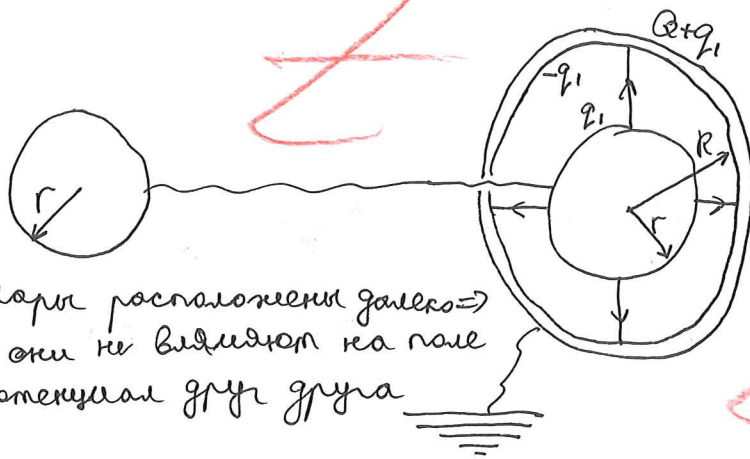 Q+q₁
-q₁
q₁
R
r
r
шары расположены далеко =>
они не влияют на поле
потенциал друг друга